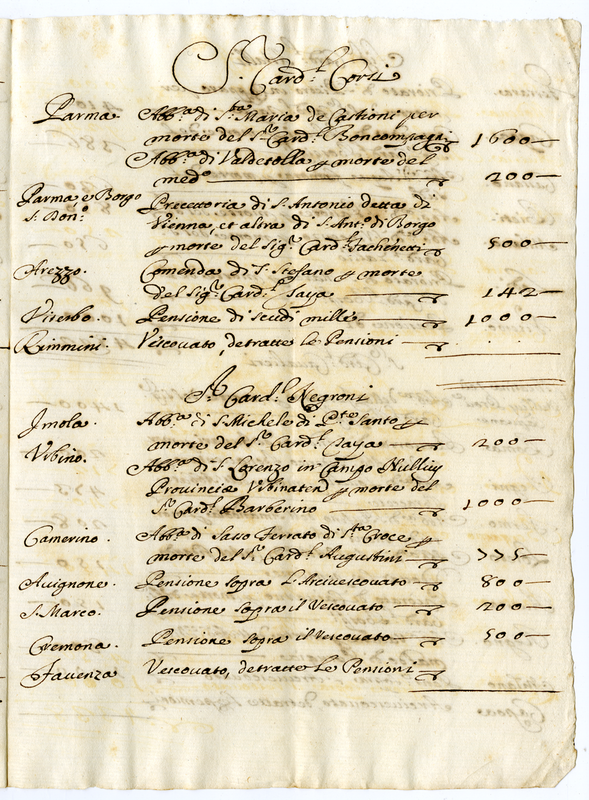 S.r Card.l Corsi
Parma. Abb.a di S.ta Maria de Castioni per
morte del S.r Card.l Boncompagni 1600
Abb.a di Valdetolla p morte del
med.o 200
Parma, e Borgo Precettoria di S. Antonio detta di
S. Don.o Vienna, et altra di S. Ant.o di Borgo
p morte del Sig.r Card.l Fachenetti 500
Arezzo. Comenda di S. Stefano p morte
del Sig.r Card.l Jaya 142
Viterbo. Pensione di scudi mille 1000
Rimmini. Vescovato, detratte le Pensioni . . .
S.r Card.l Negroni
Imola. Abb.a di S. Michele di P.te Santo p
morte del S.r Card.l Jaya 200
Vrbino. Abb.a di S. Lorenzo in Campo Nullius
Provinciæ Vrbinaten p morte del
S.r Card.l Barberino 1000
Camerino. Abb.a di Sasso Ferrato di S.ta Croce p
morte del S.r Card.l Augustini 775
Auignone. Pensione sopra l'Arcivescovato 800
S. Marco. Pensione sopra il Vescovato 200
Cremona. Pensione sopra il Vescovato 500
Favenza Vescovato, detratte le Pensioni